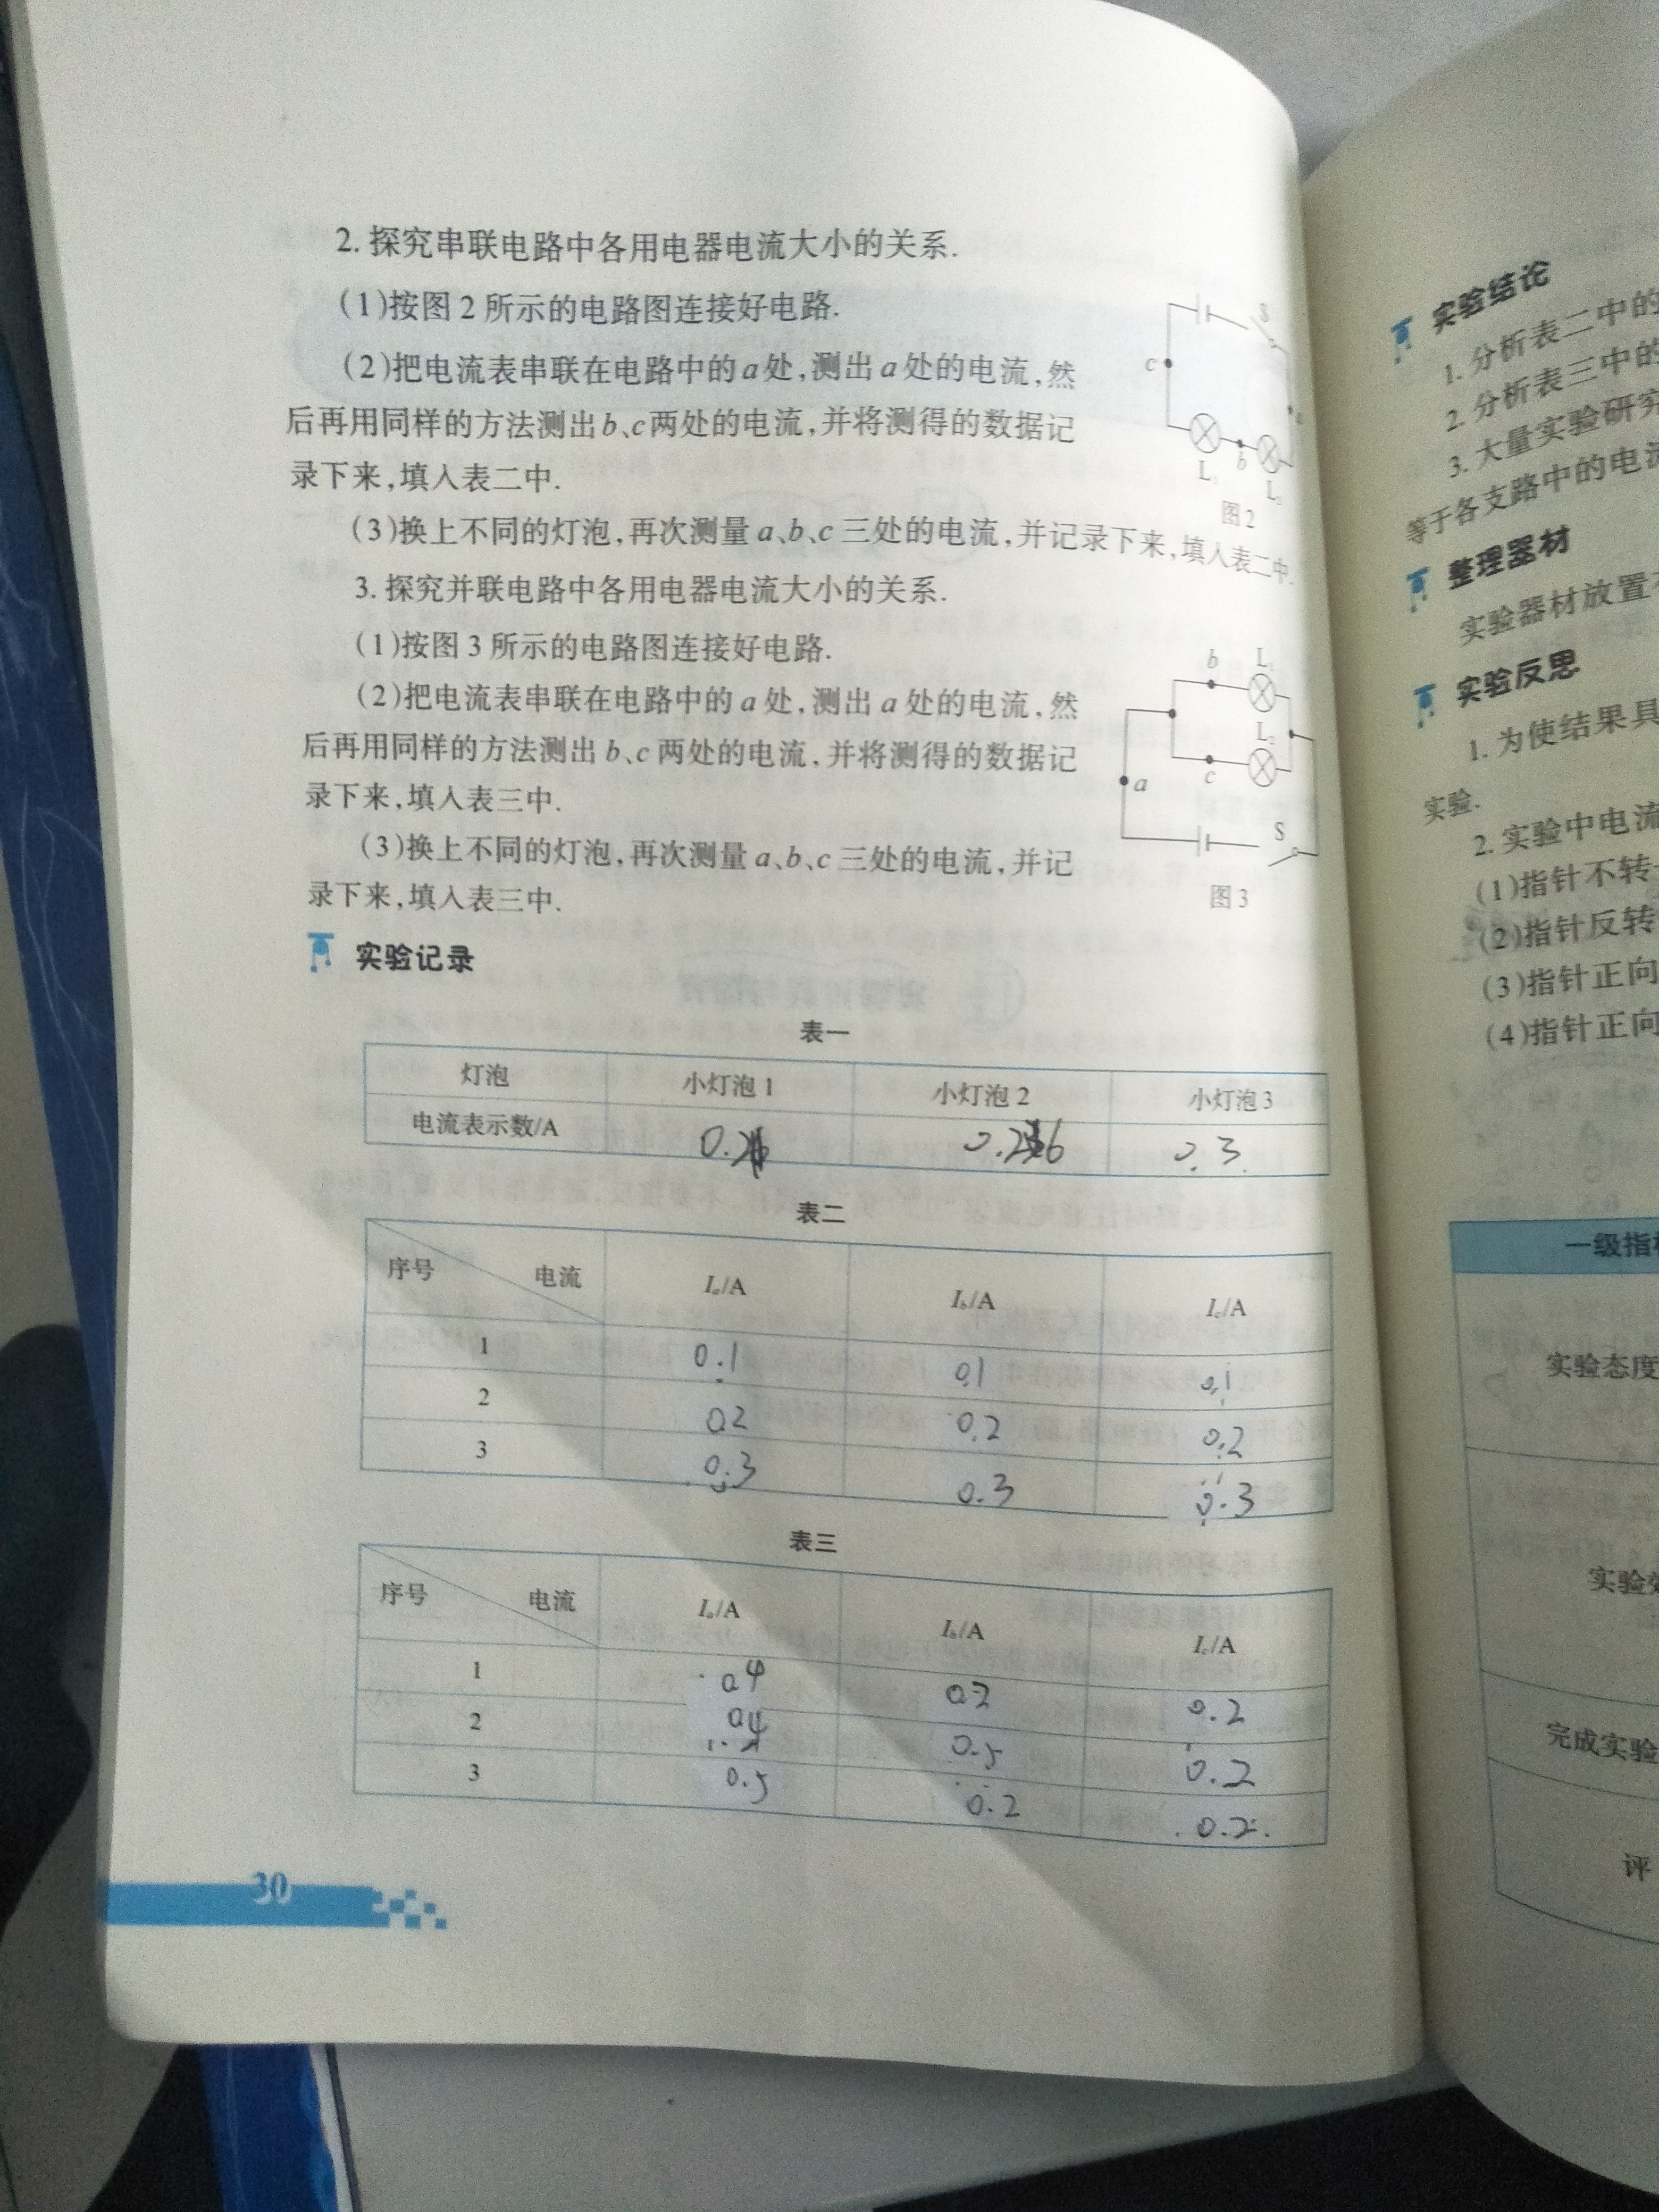 2. 探究串联电路中各用电器电流大小的关系.
(1)按图2所示的电路图连接好电路.
(2)把电流表串联在电路中的a处,测出a处的电流,然
后再用同样的方法测出b、c两处的电流,并将测得的数据记
录下来,填入表二中.
S
c
L₁
b
L₂
图2
(3)换上不同的灯泡,再次测量a、b、c三处的电流,并记录下来,填入表二中.
3. 探究并联电路中各用电器电流大小的关系.
(1)按图3所示的电路图连接好电路.
(2)把电流表串联在电路中的a处,测出a处的电流,然
后再用同样的方法测出b、c两处的电流,并将测得的数据记
录下来,填入表三中.
(3)换上不同的灯泡,再次测量a、b、c三处的电流,并记
录下来,填入表三中.
b L₁
L₂
c
a
S
图3
实验记录
表一
灯泡 小灯泡1 小灯泡2 小灯泡3
电流表示数/A 0.3
表二
序号 电流 Iₐ/A I_b/A I_c/A
1 0.1 0.1 0.1
2 0.2 0.2 0.2
3 0.3 0.3 0.3
表三
序号 电流 Iₐ/A I_b/A I_c/A
1 0.4 0.2 0.2
2 0.4 0.5 0.2
3 0.5 0.2 0.2
30
实验结论
1. 分析表二中的
2. 分析表三中的
3. 大量实验研究
等于各支路中的电流
整理器材
实验器材放置
实验反思
1. 为使结果具
实验.
2. 实验中电流
(1)指针不转
(2)指针反转
(3)指针正向
(4)指针正向
一级指
实验态度
实验
完成实验
评